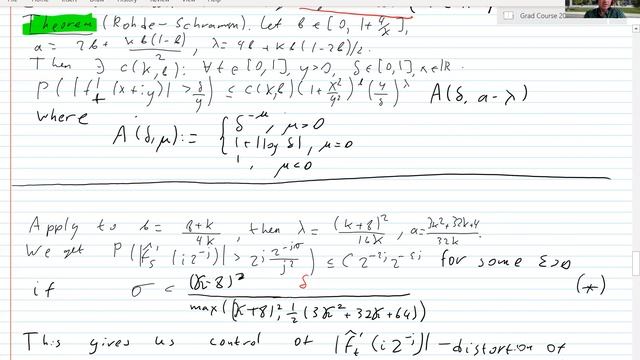 Grad Course 20
Theorem (Rohde-Schramm). Let b∈[0, 1+4/κ],
a = 2b + κb(1-b)/2, λ = 4b + κb(1-2b)/2.
Then ∃ c(κ,b): ∀t∈[0,1], y>0, δ∈[0,1], x∈ℝ.
P(|f̂'_t(x+iy)| > δ/y) ≤ c(κ,b)(1+x²/y²)^b (y/δ)^λ A(δ, a-λ)
where
A(δ,μ) := { δ^{-μ}, μ>0
1+|log δ|, μ=0
1, μ<0
Apply to b = 8+κ/4κ, then λ = (κ+8)²/16κ, a =
We get P(|f̂'_s(i2^{-j})| > 2^j 2^{-jσ}/j²) ≤ C 2^{-2j} 2^{-εj} for some ε>0
if σ < (κ-8)² / max((κ+8)², ½(3κ²+32κ+64)) δ (*)
This gives us control of |f̂'_t(i2^{-j})| - distortion of